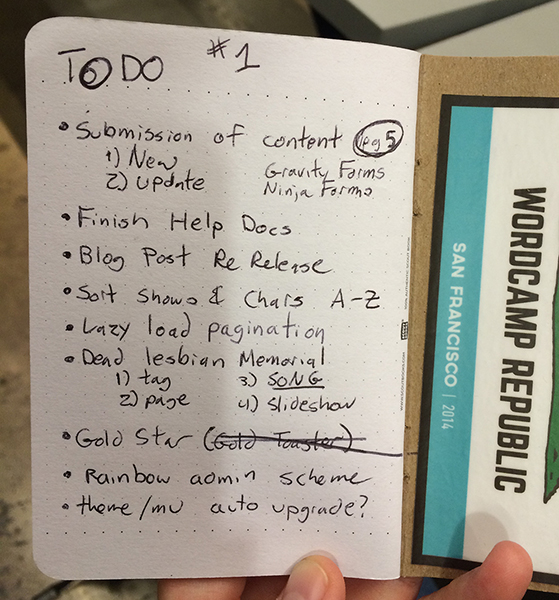 TO DO #1
• Submission of content (pg 5)
1) New Gravity Forms
2) update Ninja Forms
• Finish Help Docs
• Blog Post Re Release
• Sort Shows & Chars A-Z
• Lazy load pagination
• Dead lesbian Memorial
1) tag 3) SONG
2) page 4) Slideshow
• Gold Star (Gold Toaster)
• Rainbow admin scheme
• theme/mu auto upgrade?
WORDCAMP REPUBLIC
SAN FRANCISCO | 2014